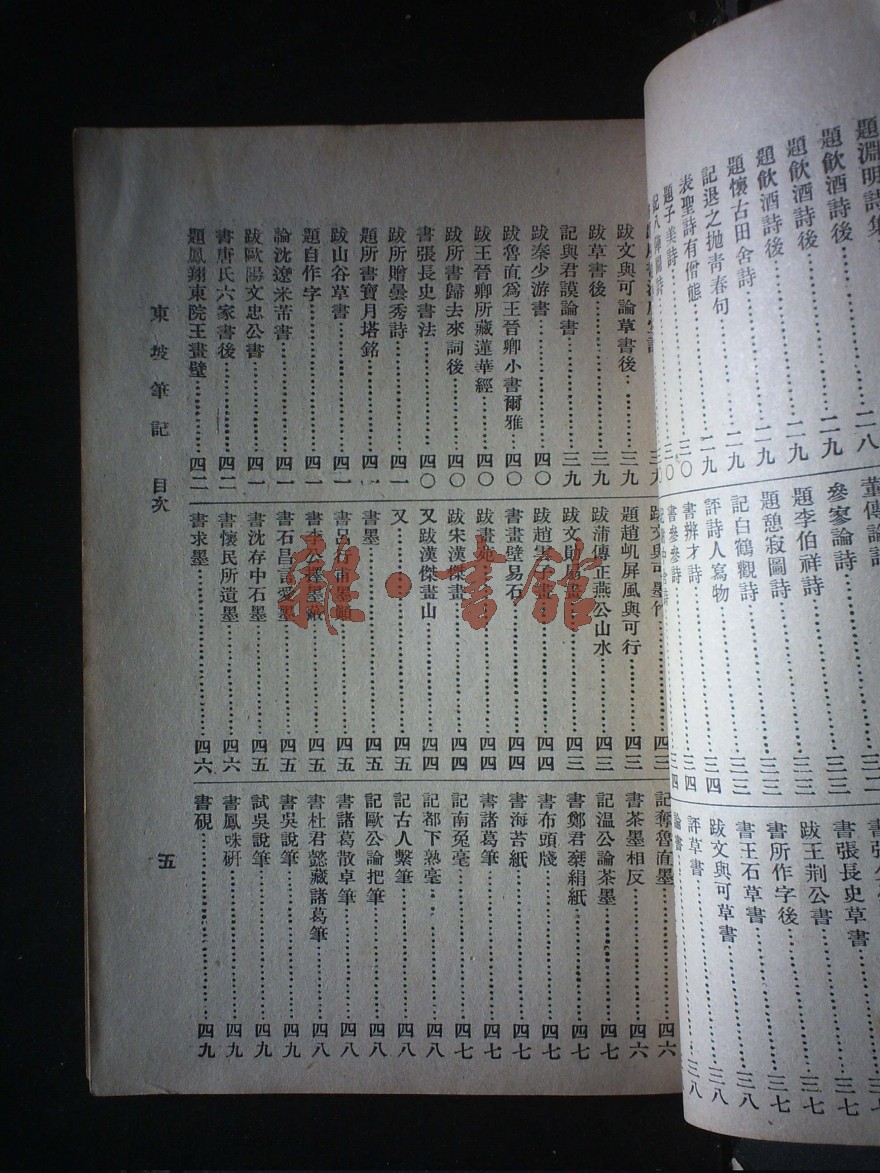 題飲酒詩後……二九
題飲酒詩後……二九
題飲酒詩後……二九
題懷古田舍詩……二九
記退之拋青春句……二九
表聖詩有僧態……三〇
題子美詩……三〇
參寥論詩……三三
題李伯祥詩……三三
題憩寂圖詩……三三
記白鶴觀詩……三三
評詩人寫物……三四
書辨才詩……三四
書參參詩
書張長史草書……三七
跋王荆公書……三七
書所作字後……三七
書王石草書……三八
跋文與可草書……三八
評草書……三八
跋文與可論草書後……三九
跋草書後……三九
記與君謨論書……三九
跋秦少游書……四〇
跋魯直爲王晉卿小書爾雅……四〇
跋王晉卿所藏蓮華經……四〇
跋所書歸去來詞後……四〇
書張長史書法……四〇
跋所贈曇秀詩……四一
題所書寶月塔銘……四一
跋山谷草書……四一
題自作字……四一
論沈遼米芾書……四一
跋歐陽文忠公書……四一
書唐氏六家書後……四二
題鳳翔東院王畫壁……四二
跋文與可墨竹……四三
題趙𡵆屏風與可行……四三
跋蒲傳正燕公山水……四三
跋文勛扇畫……四三
跋趙雲子畫……四四
書畫壁易石……四四
跋畫……四四
跋宋漢傑畫……四四
又跋漢傑畫山……四四
又……四五
書墨……四五
書呂行甫墨顛……四五
書李公擇墨蔽……四五
書石昌言愛墨……四五
書沈存中石墨……四五
書懷民所遺墨……四六
書求墨……四六
記奪魯直墨……四六
書茶墨相反……四六
記溫公論茶墨……四七
書鄭君乘絹紙……四七
書布頭牋……四七
書海苔紙……四七
書諸葛筆……四七
記南兔毫……四七
記都下熟毫……四八
記古人繫筆……四八
記歐公論把筆……四八
書諸葛散卓筆……四八
書杜君懿藏諸葛筆……四八
書吳說筆……四九
試吳說筆……四九
書鳳咮硏……四九
書硯……四九
東坡筆記 目次
五
雜·書館